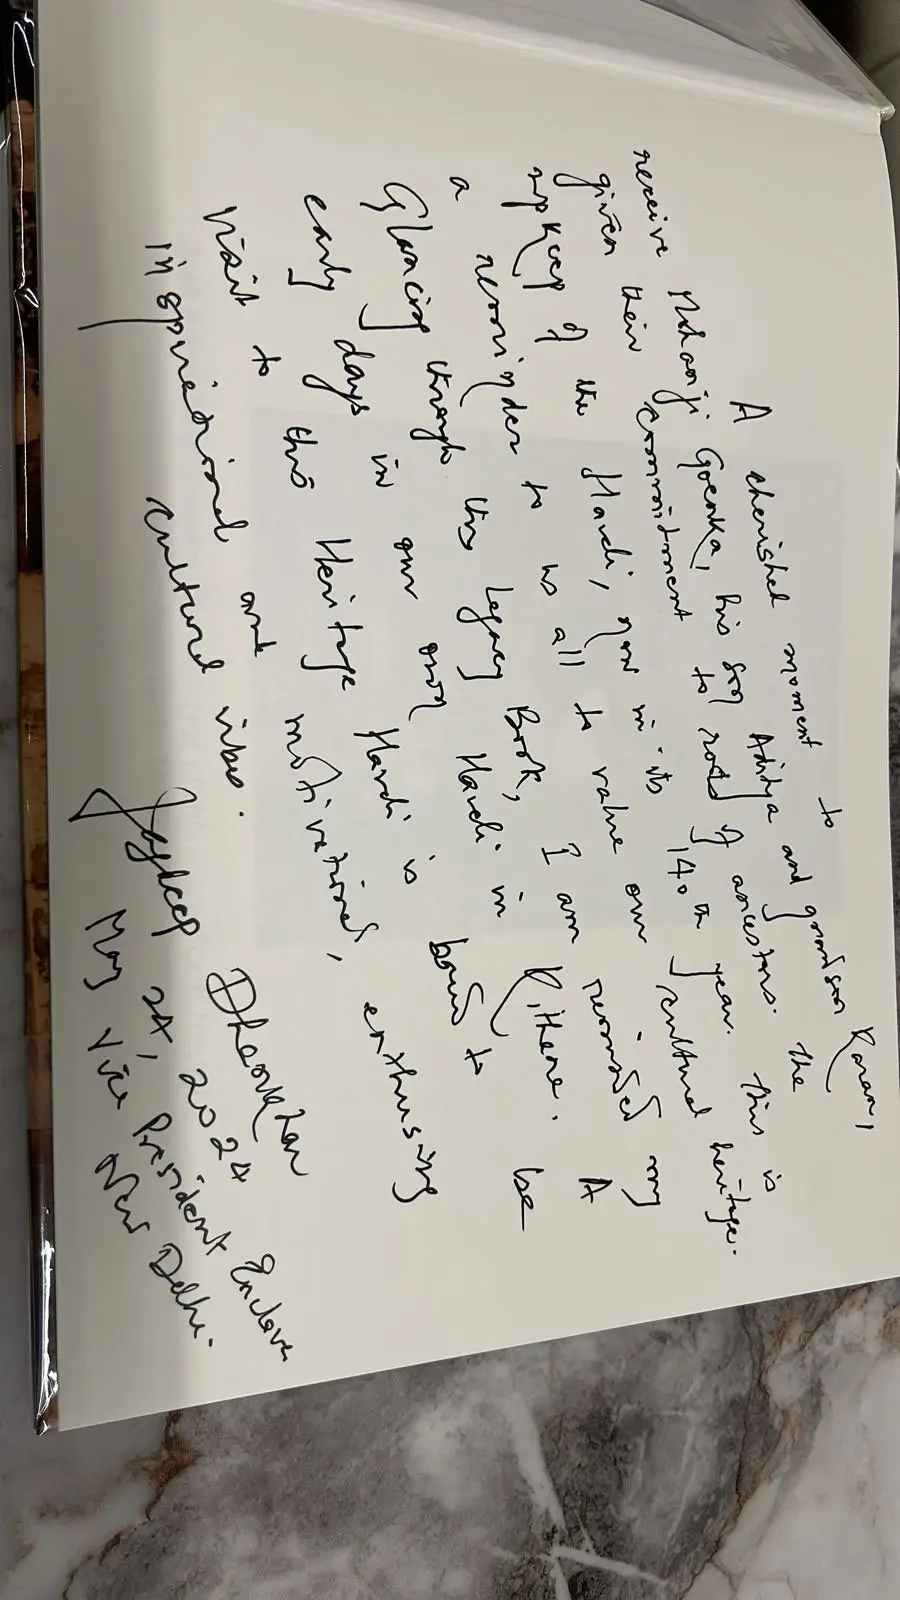 A cherished moment to
receive Mohanji Goenka, his son Aditya and grandson Karan,
given their commitment to roots of ancestors. The
upkeep of the Haveli, now in its 140th year. This is
a reminder to us all to value our cultural heritage.
Glancing through this Legacy Book, I am reminded my
early days in our own Haveli in Kithana. A
visit to this Heritage Haveli is bound to be
inspirational and motivational, enthusing
cultural vibes.
Jagdeep Dhankhar
May 24, 2024
Vice President Enclave
New Delhi.